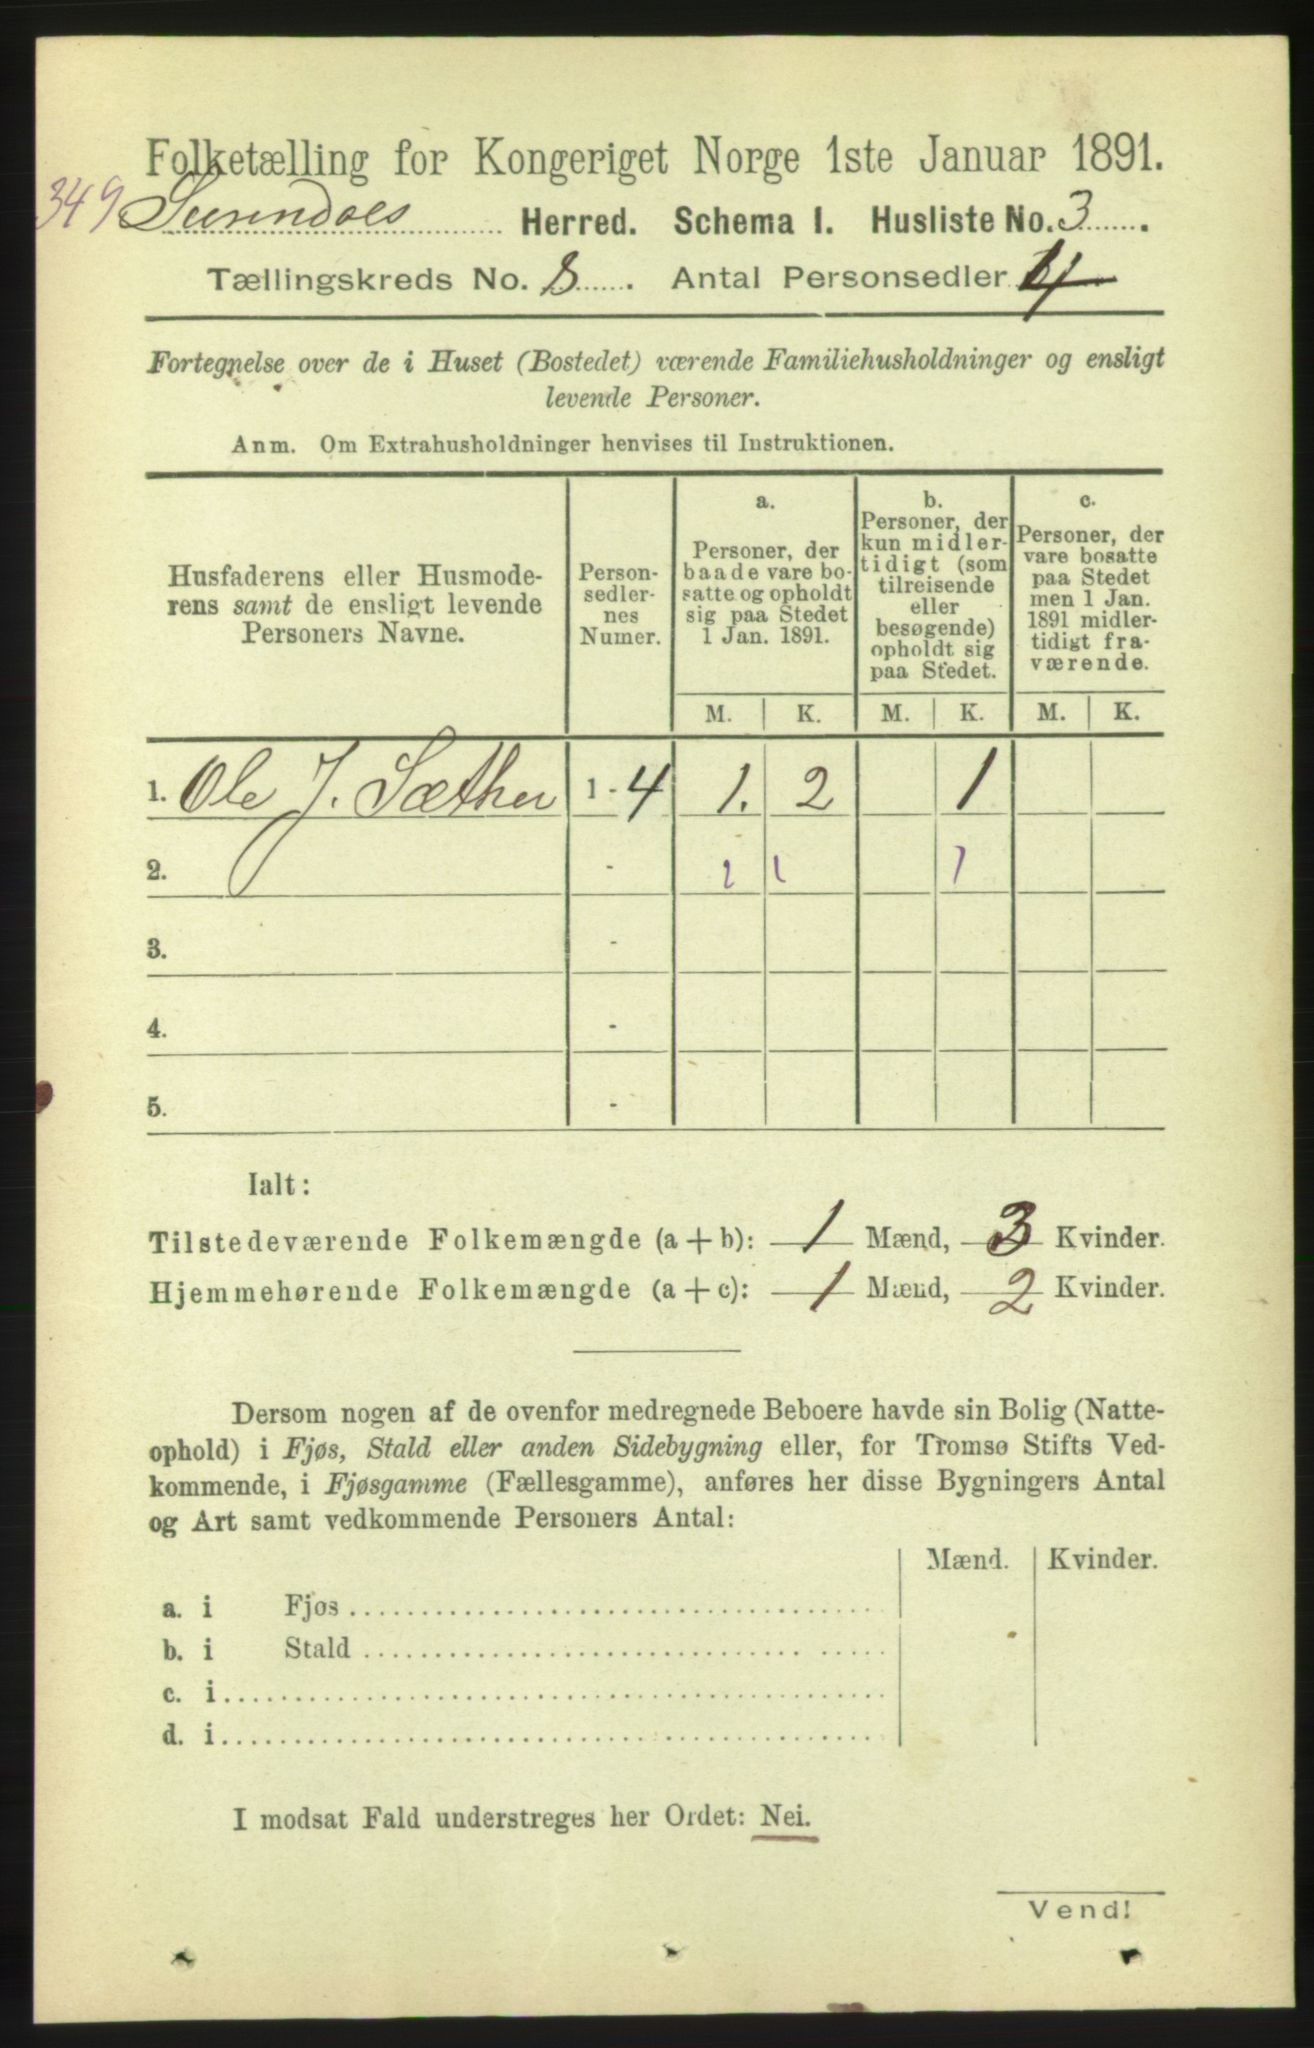 Folketælling for Kongeriget Norge 1ste Januar 1891.
349 Surendals Herred. Schema I. Husliste No. 3
Tællingskreds No. 8. Antal Personsedler 4
Fortegnelse over de i Huset (Bostedet) værende Familiehusholdninger og ensligt
levende Personer.
Anm. Om Extrahusholdninger henvises til Instruktionen.
Husfaderens eller Husmode-
rens samt de ensligt levende
Personers Navne.
Person-
sedler-
nes
Numer.
a.
Personer, der
baade vare bo-
satte og opholdt
sig paa Stedet
1 Jan. 1891.
b.
Personer, der
kun midler-
tidigt (som
tilreisende
eller
besøgende)
opholdt sig
paa Stedet.
c.
Personer, der
vare bosatte
paa Stedet
men 1 Jan.
1891 midler-
tidigt fra-
værende.
M. K. M. K. M. K.
1. Ole J. Sæther 1 - 4 1. 2 1
2. - 1 1 1
3. -
4. -
5. -
Ialt:
Tilstedeværende Folkemængde (a + b): 1 Mænd, 3 Kvinder.
Hjemmehørende Folkemængde (a + c): 1 Mænd, 2 Kvinder.
Dersom nogen af de ovenfor medregnede Beboere havde sin Bolig (Natte-
ophold) i Fjøs, Stald eller anden Sidebygning eller, for Tromsø Stifts Ved-
kommende, i Fjøsgamme (Fællesgamme), anføres her disse Bygningers Antal
og Art samt vedkommende Personers Antal:
Mænd. Kvinder.
a. i Fjøs
b. i Stald
c. i
d. i
I modsat Fald understreges her Ordet: Nei.
Vend!